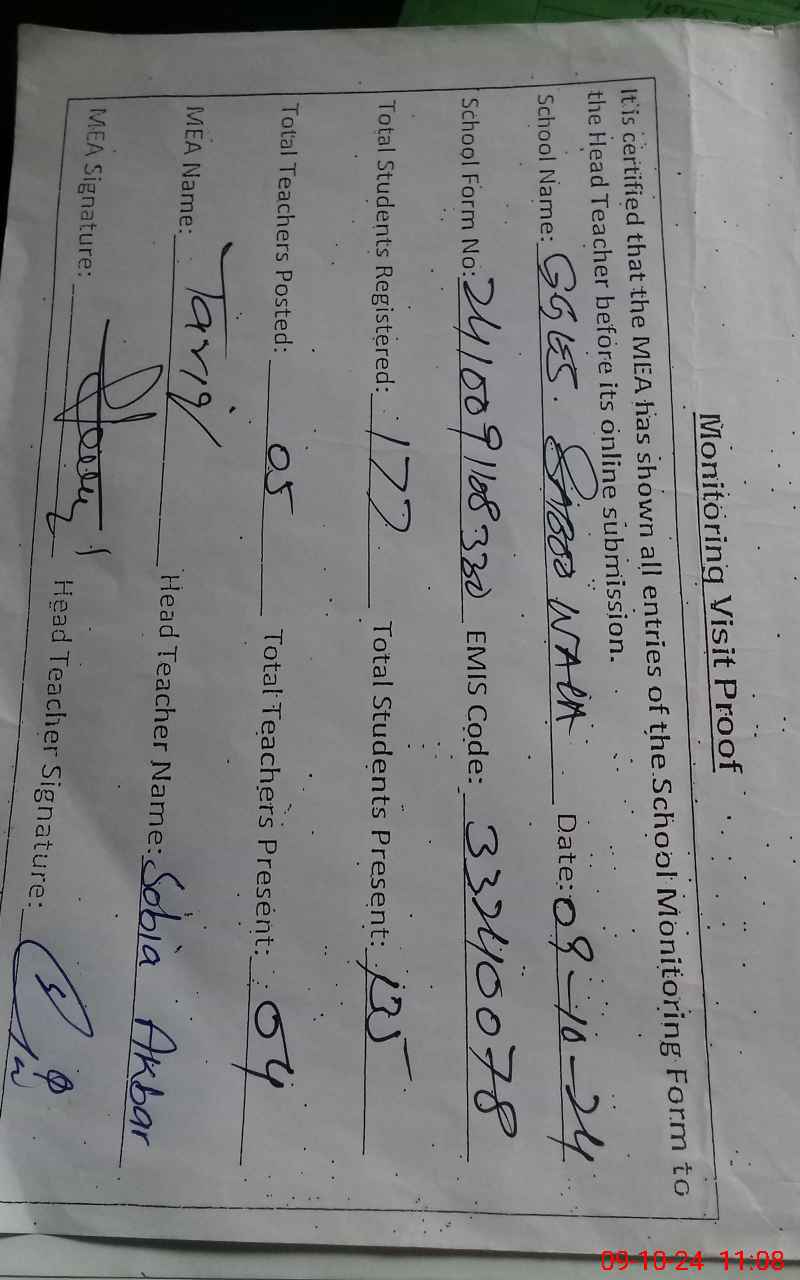 Monitoring Visit Proof
It is certified that the MEA has shown all entries of the School Monitoring Form to
the Head Teacher before its online submission.
School Name: GGES. WALA Date: 09-10-24
School Form No: 241009108330 EMIS Code: 33240078
Total Students Registered: 177 Total Students Present: 135
Total Teachers Posted: 05 Total Teachers Present: 04
MEA Name: Tariq Head Teacher Name: Sobia Akbar
MEA Signature: Head Teacher Signature:
09-10-24 11:08